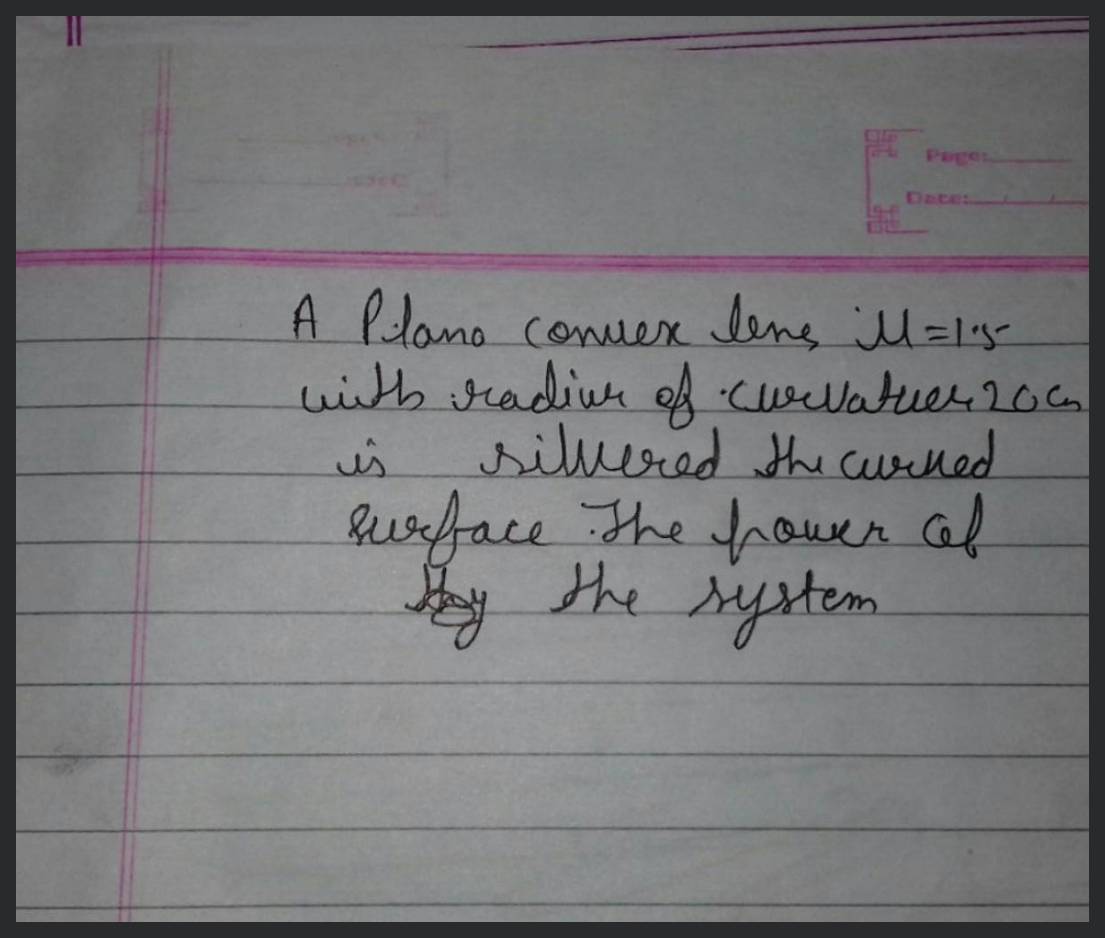 Page:
Date:
A Plano convex lens μ=1.5
with radius of curvatuer 20cm
is silvered the curved
surface. The power of
the system